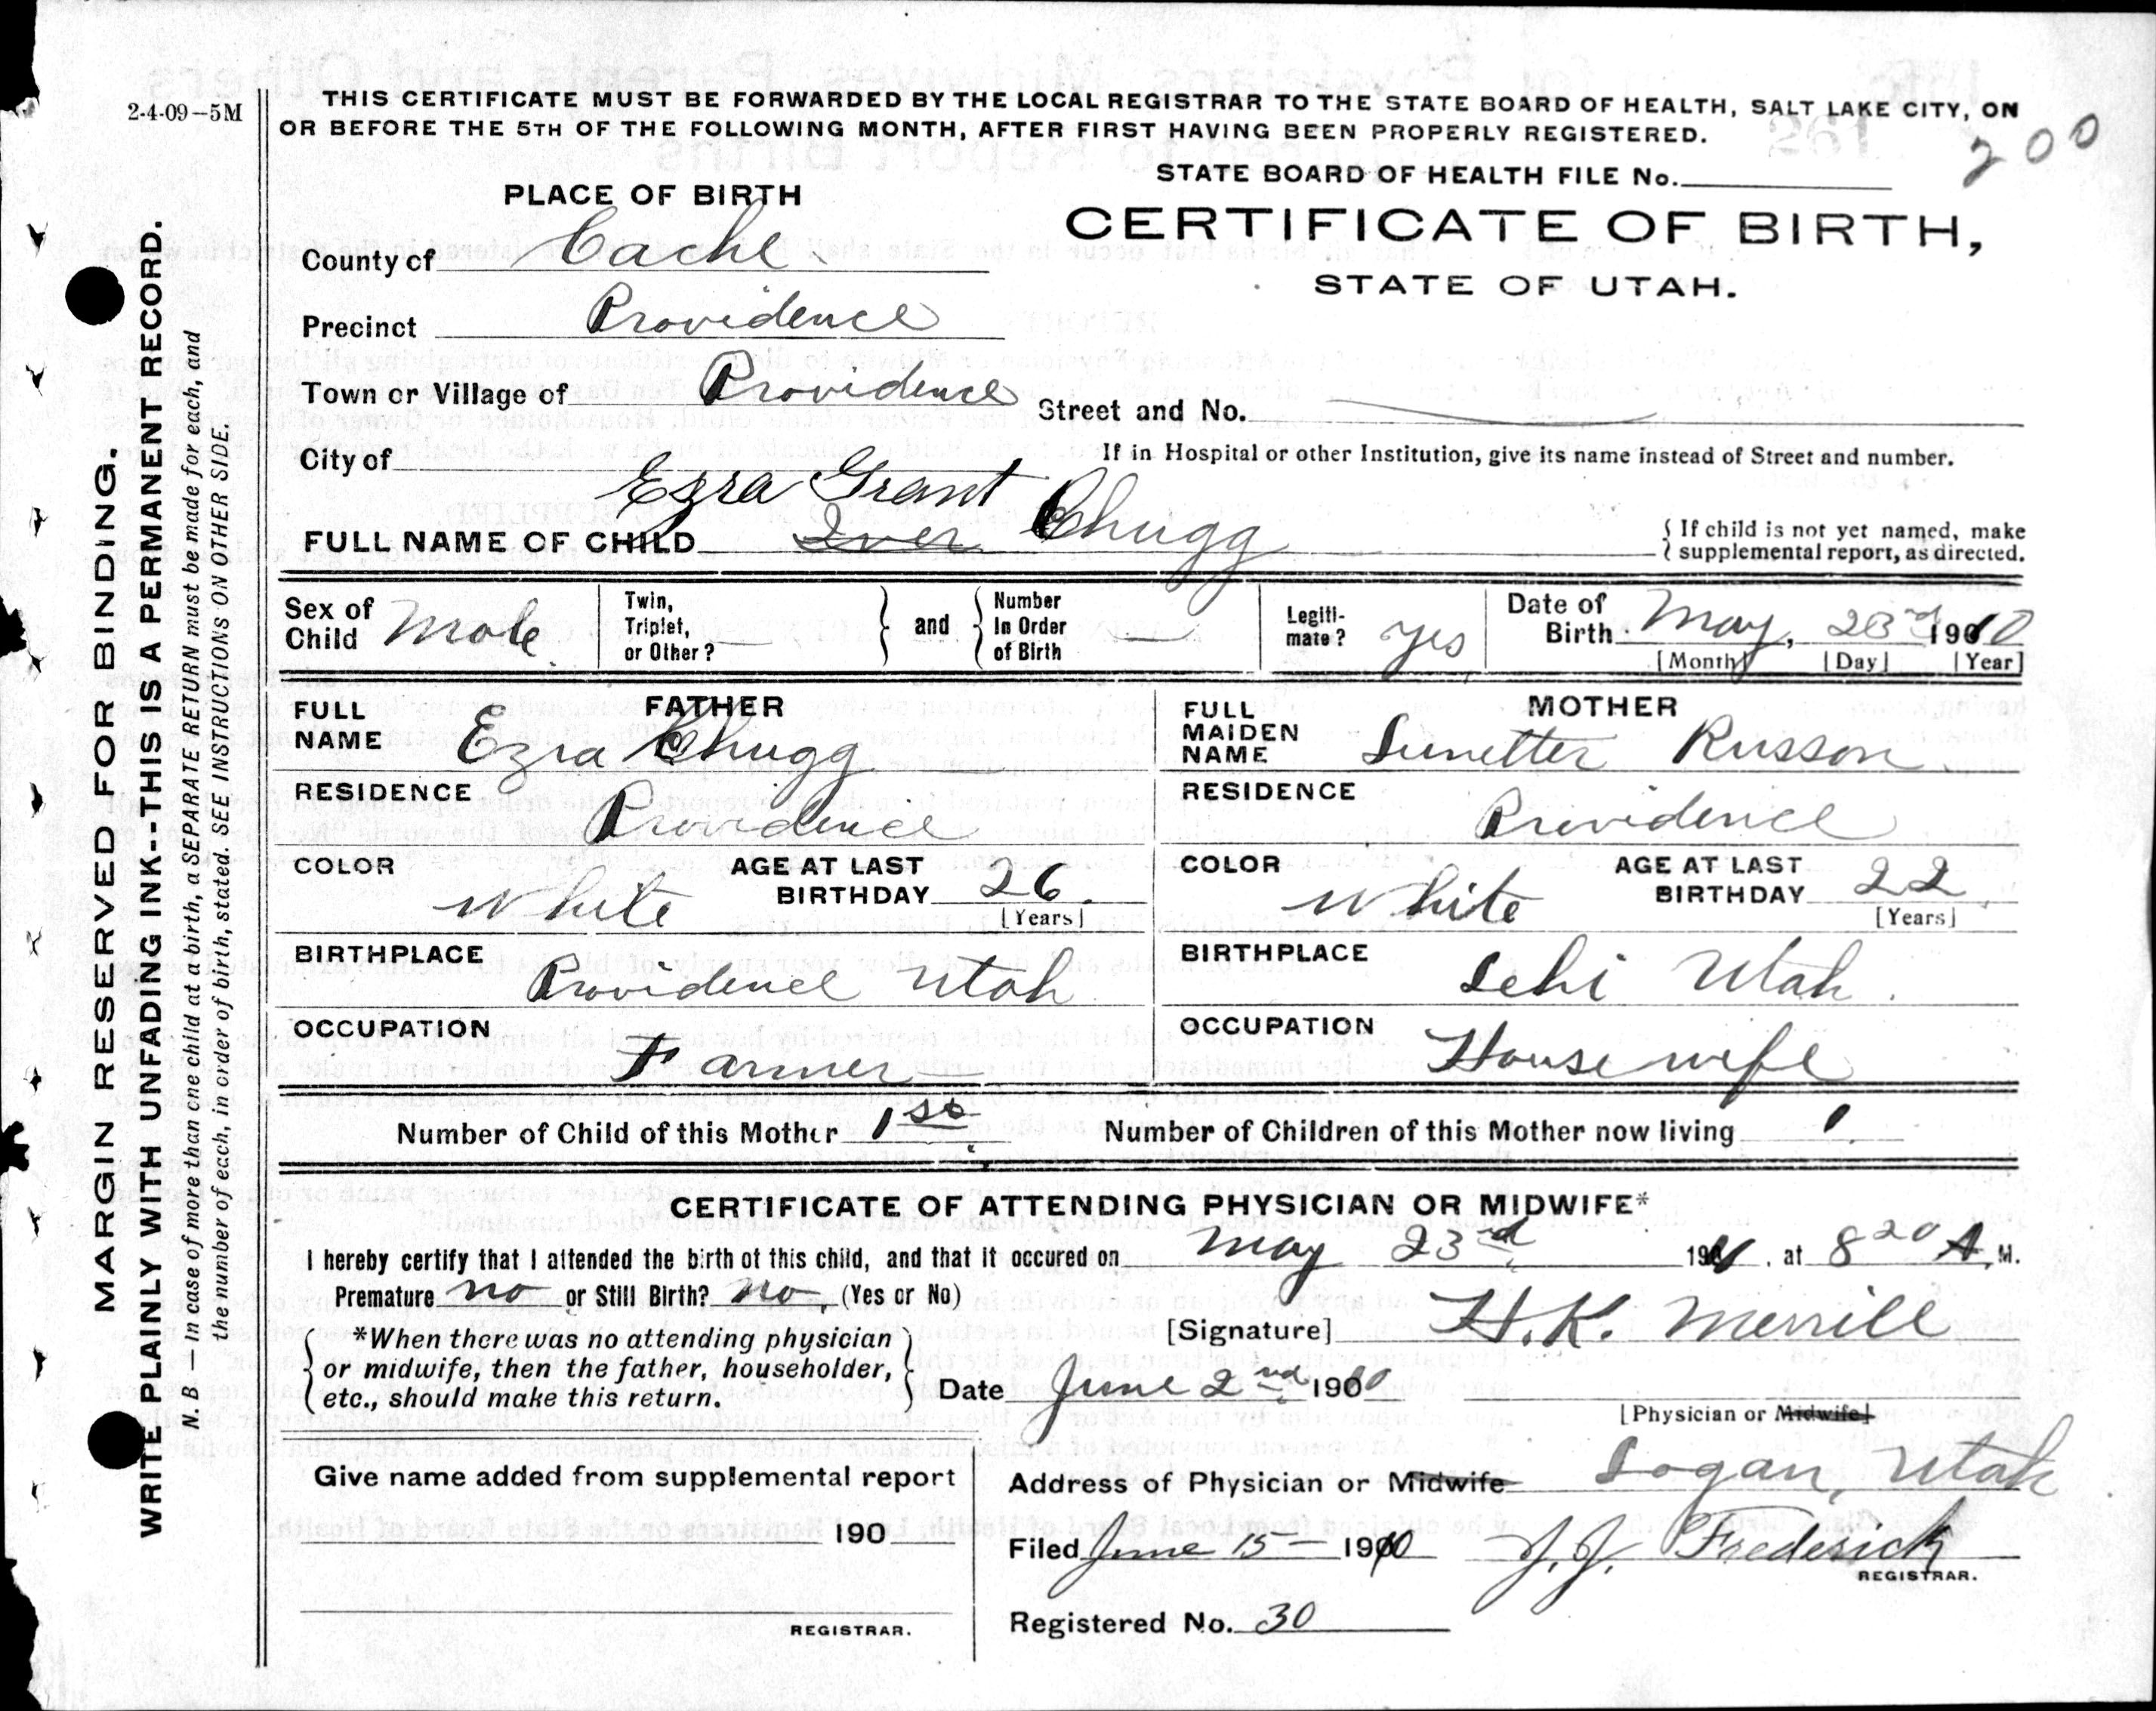 2-4-09–5M
THIS CERTIFICATE MUST BE FORWARDED BY THE LOCAL REGISTRAR TO THE STATE BOARD OF HEALTH, SALT LAKE CITY, ON
OR BEFORE THE 5TH OF THE FOLLOWING MONTH, AFTER FIRST HAVING BEEN PROPERLY REGISTERED.
200
STATE BOARD OF HEALTH FILE No.
PLACE OF BIRTH
CERTIFICATE OF BIRTH,
STATE OF UTAH.
County of Cache
Precinct Providence
Town or Village of Providence
Street and No.
City of
If in Hospital or other Institution, give its name instead of Street and number.
Ezra Grant
FULL NAME OF CHILD Iver Chugg
{ If child is not yet named, make
{ supplemental report, as directed.
Sex of Child Male
Twin, Triplet, or Other? —
and
Number In Order of Birth —
Legiti-mate? yes
Date of Birth May, 23rd 1910
[Month] [Day] [Year]
FATHER
FULL NAME Ezra Chugg
RESIDENCE Providence
COLOR White
AGE AT LAST BIRTHDAY 26
[Years]
BIRTHPLACE Providence Utah
OCCUPATION Farmer
MOTHER
FULL MAIDEN NAME Lunetter Russon
RESIDENCE Providence
COLOR White
AGE AT LAST BIRTHDAY 22
[Years]
BIRTHPLACE Lehi Utah.
OCCUPATION Housewife
Number of Child of this Mother 1st
Number of Children of this Mother now living 1
CERTIFICATE OF ATTENDING PHYSICIAN OR MIDWIFE*
I hereby certify that I attended the birth of this child, and that it occured on May 23rd 190, at 8 20 A. M.
Premature no or Still Birth? no, (Yes or No)
*When there was no attending physician
or midwife, then the father, householder,
etc., should make this return.
[Signature] H. K. Merrill
Date June 2nd 1910
[Physician or Midwife]
Give name added from supplemental report
190
REGISTRAR.
Address of Physician or Midwife Logan, Utah
Filed June 15 – 1910 J. J. Frederick
REGISTRAR.
Registered No. 30
MARGIN RESERVED FOR BINDING.
WRITE PLAINLY WITH UNFADING INK--THIS IS A PERMANENT RECORD.
N. B. — In case of more than one child at a birth, a SEPARATE RETURN must be made for each, and
the number of each, in order of birth, stated. SEE INSTRUCTIONS ON OTHER SIDE.